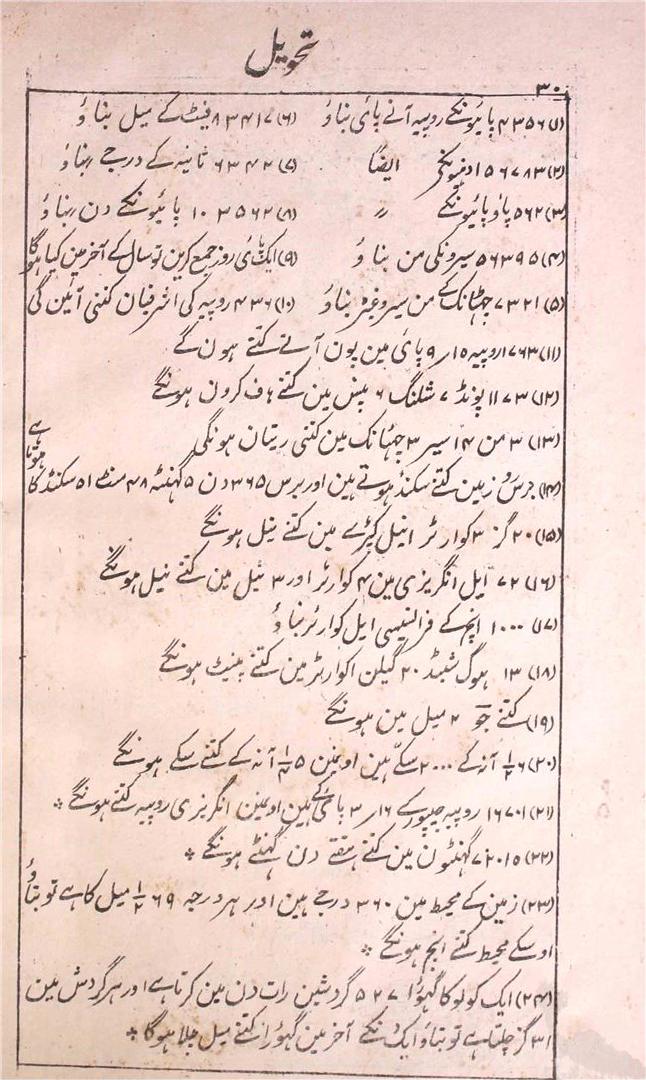 تحویل
۳۰
(۱) ۴۳۵۶ پائیونکے روپیہ آنے پائی بناؤ (۶) ۸۳۴۱۷ فیٹ کے میل بناؤ
(۲) ۱۵۶۷۸۳ ایضًا (۷) ۶۳۴۲ ثانیہ کے درجے بناؤ
(۳) ۵۶۲ پاؤ پائیونکے 〃 (۸) ۱۰۳۵۶۲ پائیونکے دن بناؤ
(۴) ۵۶۳۹۵ سیرونکی من بناؤ (۹) ایک پائی روز جمع کرین تو سال کے آخر مین کیا ہوگا
(۵) ۷۳۲۱ چہٹانک کے من سیر وغیرہ بناؤ (۱۰) ۴۳۶ روپیہ کی اشرفیان کتنی آئین گی
(۱۱) ۱۷۶۳ روپیہ ۱۵؍ ۹ پائی مین پون آنے کتنے ہون گے
(۱۲) ۱۱۷۳ پونڈ ۷ شلنگ ۶ پنس مین کتنے ہاف کرون ہونگے
(۱۳) ۳ من ۱۴ سیر ۳ چہٹانک مین کتنی رتیان ہونگی
(۱۴) جس روز مین کتنے سکنڈ ہوتے ہین اور برس ۳۶۵ دن ۵ گہنٹہ ۴۸ منٹ ۵۱ سکنڈ کا ہوتا ہے
(۱۵) ۲۰ گز ۳ کوارٹر ۱ نیل کپڑے مین کتنے نیل ہونگے
(۱۶) ۷۲ ایل انگریزی مین ۴ کوارٹر اور ۳ نیل مین کتنے نیل ہونگے
(۱۷) ۱۰۰۰ انچ کے فرانسیسی ایل کوارٹر بناؤ
(۱۸) ۱۳ ہوگ شیڈ ۲۰ گیلن ۱ کوارٹر مین کتنے پنیٹ ہونگے
(۱۹) کتنے جَو ۲ میل مین ہونگے
(۲۰) ۶ ۱/۲ آنہ کے ۲۰۰۰ سکّے ہین اونمین ۵ ۱/۴ آنہ کے کتنے سکے ہونگے
(۲۱) ۱۶۷۰۱ روپیہ جیپور کے ۱۶؍ ۳ پائی کے ہین اونمین انگریزی روپیہ کتنے ہونگے *
(۲۲) ۷۲۰۱۵ گہنٹون مین کتنے ہفتے دن گہنٹے ہونگے *
(۲۳) زمین کے محیط مین ۳۶۰ درجے ہین اور ہر درجہ ۶۹ ۱/۲ میل کا ہے تو بتاؤ
اوسکے محیط کتنے انچ ہونگے *
(۲۴) ایک کولو کا گہوڑا ۵۲۷ گردشین رات دن مین کرتا ہے اور ہر گردش مین
۳۱ گز چلتا ہے تو بتاؤ ایک کے آخر مین گہوڑا کتنے میل چلا ہوگا *